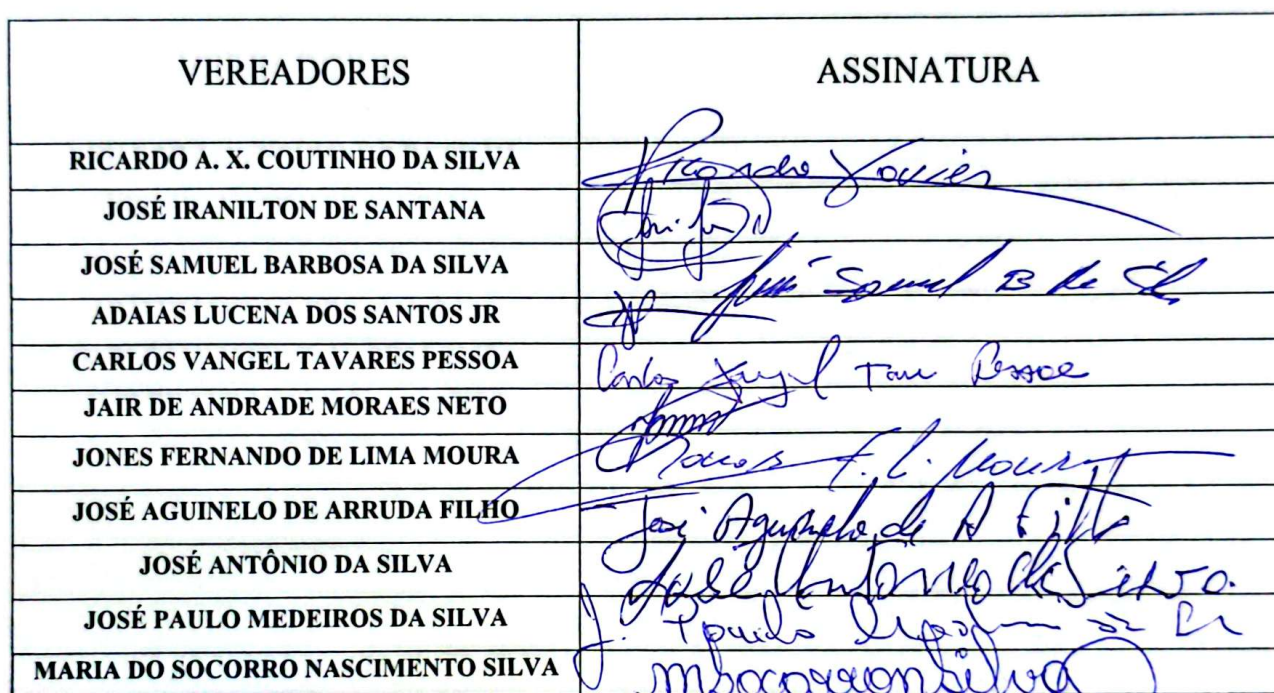 VEREADORES ASSINATURA
RICARDO A. X. COUTINHO DA SILVA Ricardo Xavier
JOSÉ IRANILTON DE SANTANA
JOSÉ SAMUEL BARBOSA DA SILVA José Samuel B da
ADAIAS LUCENA DOS SANTOS JR
CARLOS VANGEL TAVARES PESSOA Carlos Pessoa
JAIR DE ANDRADE MORAES NETO
JONES FERNANDO DE LIMA MOURA Jones F. L. Moura
JOSÉ AGUINELO DE ARRUDA FILHO José Aguinelo de A Filho
JOSÉ ANTÔNIO DA SILVA José Antonio da Silva
JOSÉ PAULO MEDEIROS DA SILVA J. Paulo
MARIA DO SOCORRO NASCIMENTO SILVA msocorronsilva